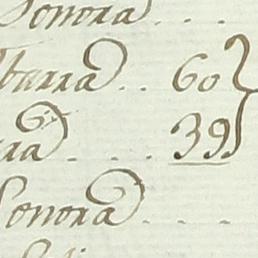 Sonora . . .
Ybarra . . 60
ra . . . 39
Sonora . . .